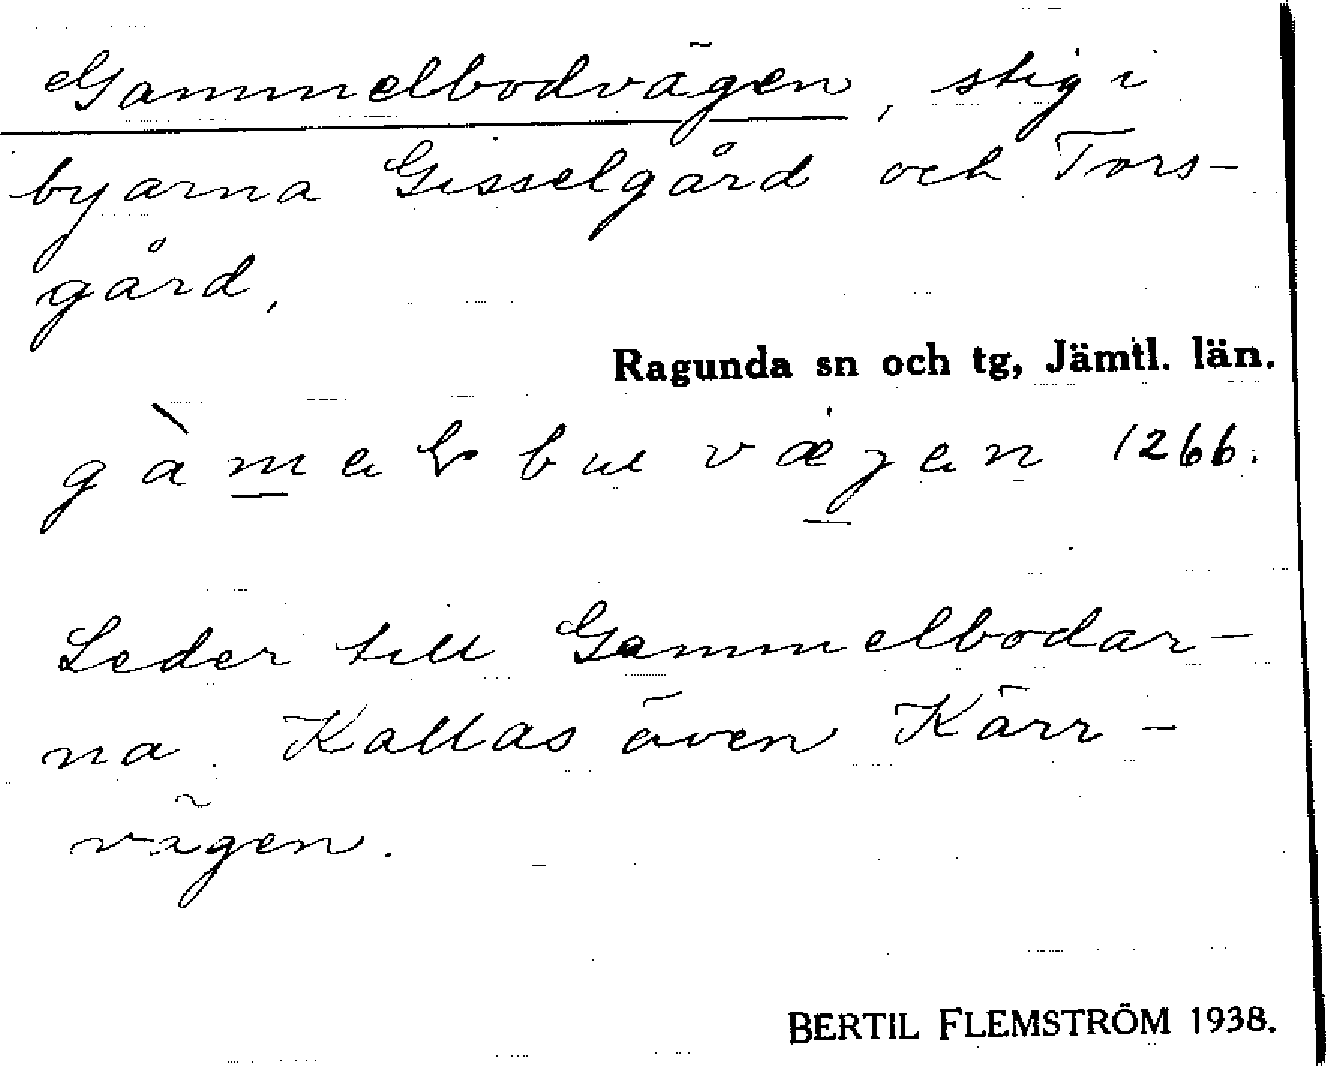 Gammelbodvägen, stig i
byarna Gisselgård och Tors-
gård.
Ragunda sn och tg, Jämtl. län.
1266.
Leder till Gammelbodar-
na. Kallas även Kärr-
vägen.
BERTIL FLEMSTRÖM 1938.